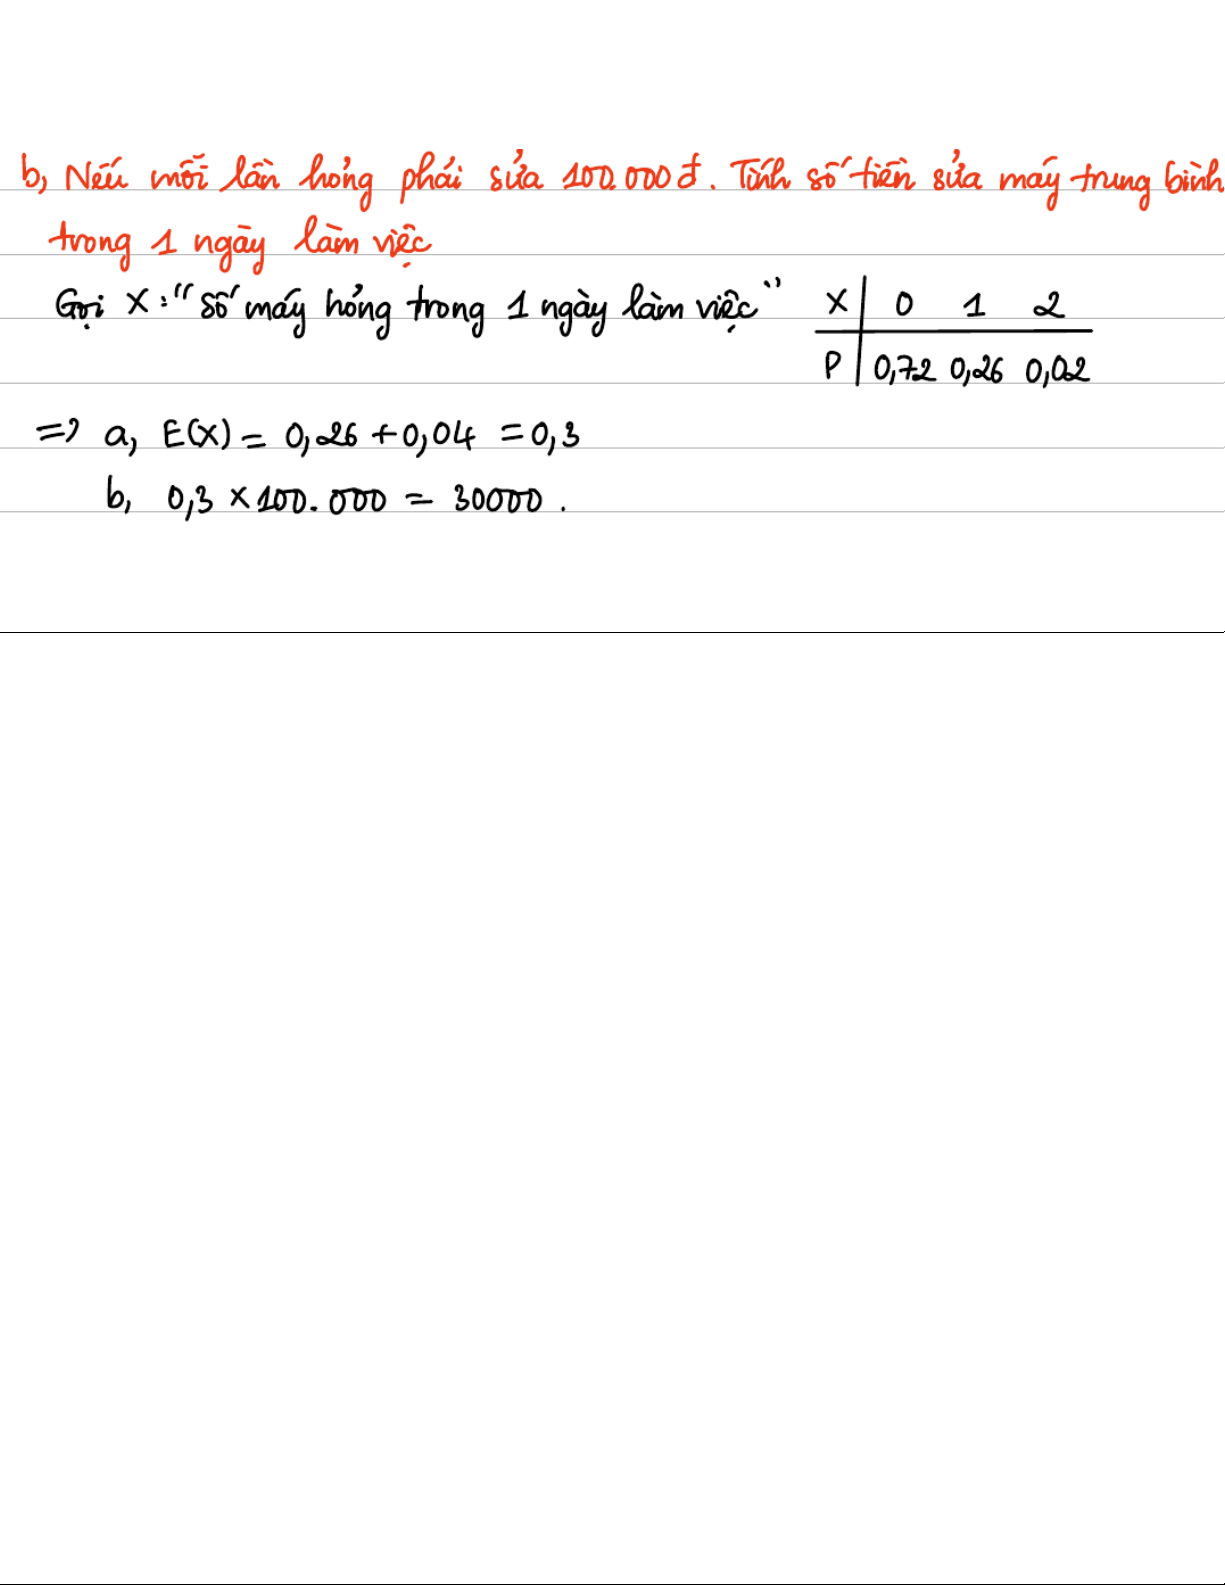 b, Nếu mỗi lần hỏng phải sửa 100.000đ. Tính số tiền sửa máy trung bình
trong 1 ngày làm việc
Gọi X: "số máy hỏng trong 1 ngày làm việc" X | 0 1 2
P | 0,72 0,26 0,02
=> a, E(X) = 0,26 + 0,04 = 0,3
b, 0,3 x 100.000 = 30000.